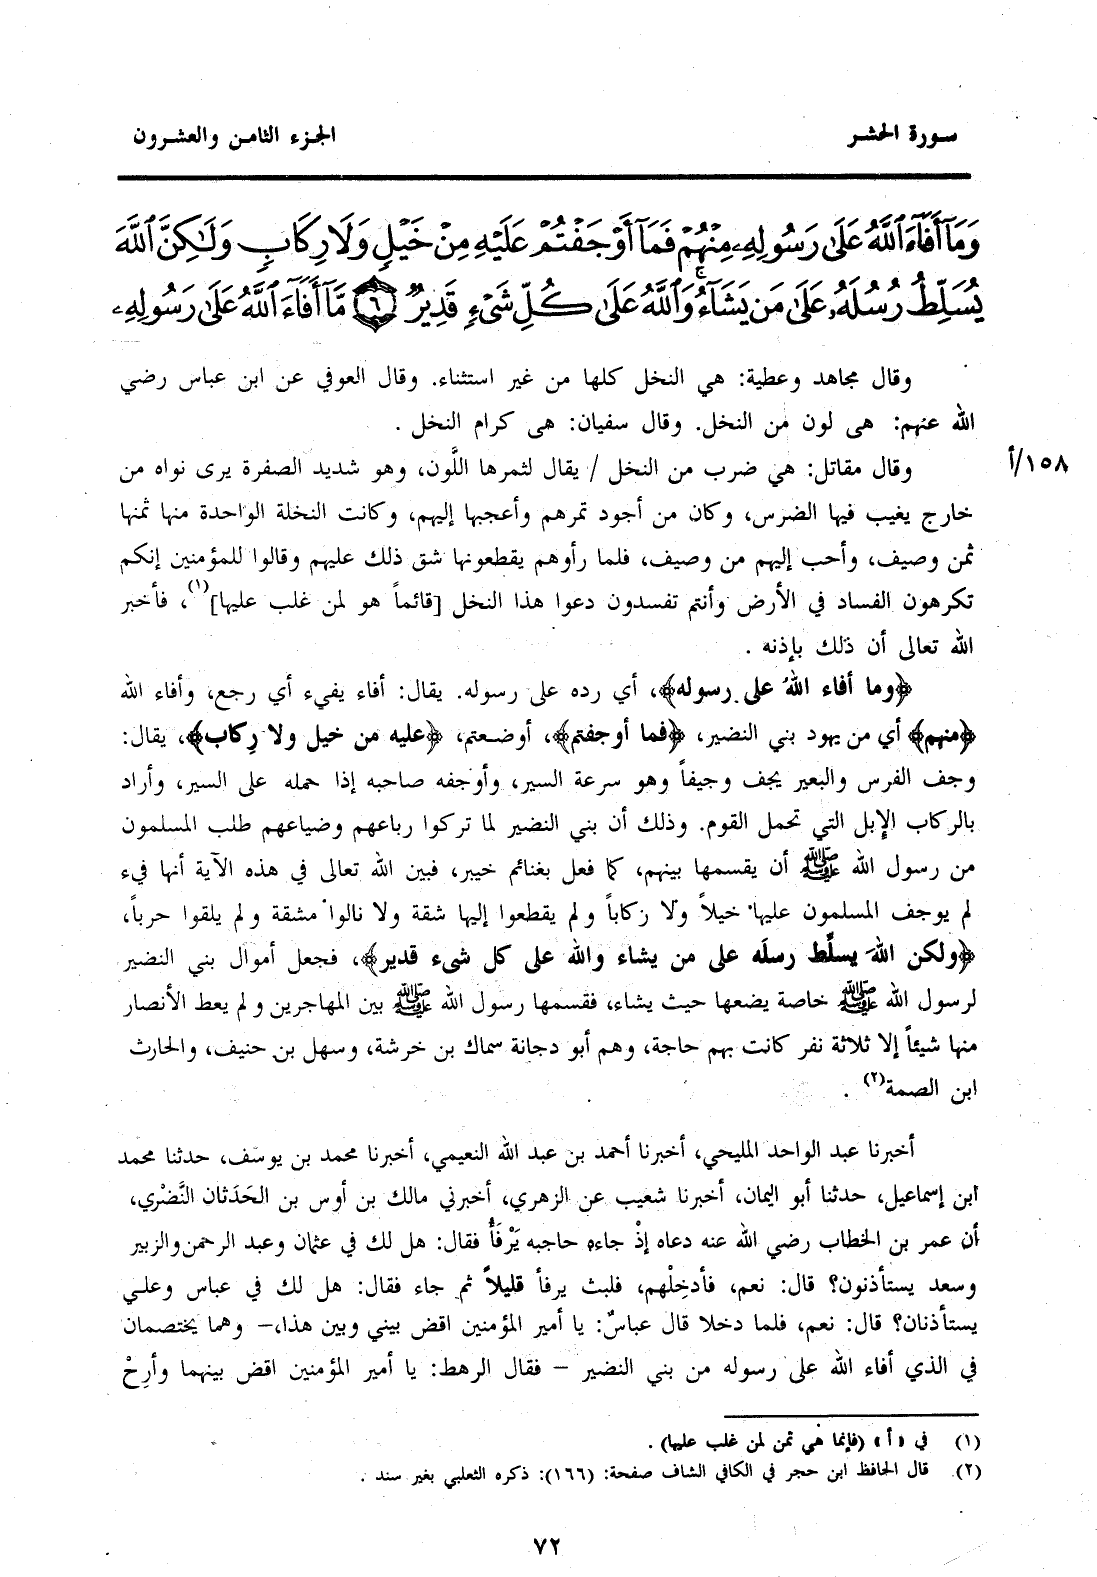 سورة الحشر
الجزء الثامن والعشرون
وَمَآ أَفَآءَ ٱللَّهُ عَلَىٰ رَسُولِهِۦ مِنْهُمْ فَمَآ أَوْجَفْتُمْ عَلَيْهِ مِنْ خَيْلٍ وَلَا رِكَابٍ وَلَـٰكِنَّ ٱللَّهَ
يُسَلِّطُ رُسُلَهُۥ عَلَىٰ مَن يَشَآءُ ۚ وَٱللَّهُ عَلَىٰ كُلِّ شَىْءٍ قَدِيرٌ ٦ مَّآ أَفَآءَ ٱللَّهُ عَلَىٰ رَسُولِهِۦ
وقال مجاهد وعطية: هي النخل كلها من غير استثناء. وقال العوفي عن ابن عباس رضي
الله عنهم: هى لون من النخل. وقال سفيان: هى كرام النخل .
وقال مقاتل: هي ضرب من النخل / يقال لثمرها اللَّون، وهو شديد الصفرة يرى نواه من
١٥٨/أ
خارج يغيب فيها الضرس، وكان من أجود تمرهم وأعجبها إليهم، وكانت النخلة الواحدة منها ثمنها
ثمن وصيف، وأحب إليهم من وصيف، فلما رأوهم يقطعونها شق ذلك عليهم وقالوا للمؤمنين إنكم
تكرهون الفساد في الأرض وأنتم تفسدون دعوا هذا النخل [قائماً هو لمن غلب عليها](١)، فأخبر
الله تعالى أن ذلك بإذنه .
﴿وما أفاء اللهُ على رسوله﴾، أي رده على رسوله. يقال: أفاء يفيء أي رجع، وأفاء الله
﴿منهم﴾ أي من يهود بني النضير، ﴿فما أوجفتم﴾، أوضعتم، ﴿عليه من خيل ولا رِكاب﴾، يقال:
وجف الفرس والبعير يجف وجيفاً وهو سرعة السير، وأوجفه صاحبه إذا حمله على السير، وأراد
بالركاب الإبل التي تحمل القوم. وذلك أن بني النضير لما تركوا رباعهم وضياعهم طلب المسلمون
من رسول الله ﷺ أن يقسمها بينهم، كما فعل بغنائم خيبر، فبين الله تعالى في هذه الآية أنها فيء
لم يوجف المسلمون عليها خيلاً ولا ركاباً ولم يقطعوا إليها شقة ولا نالوا مشقة ولم يلقوا حرباً،
﴿ولكن اللهَ يسلِّط رسلَه على من يشاء والله على كل شىء قدير﴾، فجعل أموال بني النضير
لرسول الله ﷺ خاصة يضعها حيث يشاء، فقسمها رسول الله ﷺ بين المهاجرين ولم يعط الأنصار
منها شيئاً إلا ثلاثة نفر كانت بهم حاجة، وهم أبو دجانة سماك بن خرشة، وسهل بن حنيف، والحارث
ابن الصمة(٢) .
أخبرنا عبد الواحد المليحي، أخبرنا أحمد بن عبد الله النعيمي، أخبرنا محمد بن يوسف، حدثنا محمد
ابن إسماعيل، حدثنا أبو اليمان، أخبرنا شعيب عن الزهري، أخبرني مالك بن أوس بن الحَدَثان النَّضْري،
أن عمر بن الخطاب رضي الله عنه دعاه إذْ جاءه حاجبه يَرْفَأُ فقال: هل لك في عثمان وعبد الرحمن والزبير
وسعد يستأذنون؟ قال: نعم، فأدخِلْهم، فلبث يرفأ قليلاً ثم جاء فقال: هل لك في عباس وعلي
يستأذنان؟ قال: نعم، فلما دخلا قال عباسٌ: يا أمير المؤمنين اقض بيني وبين هذا،– وهما يختصمان
في الذي أفاء الله على رسوله من بني النضير – فقال الرهط: يا أمير المؤمنين اقض بينهما وأرِحْ
(١) في «أ» (فإنما هي ثمن لمن غلب عليها) .
(٢) قال الحافظ ابن حجر في الكافي الشاف صفحة: (١٦٦): ذكره الثعلبي بغير سند .
٧٢